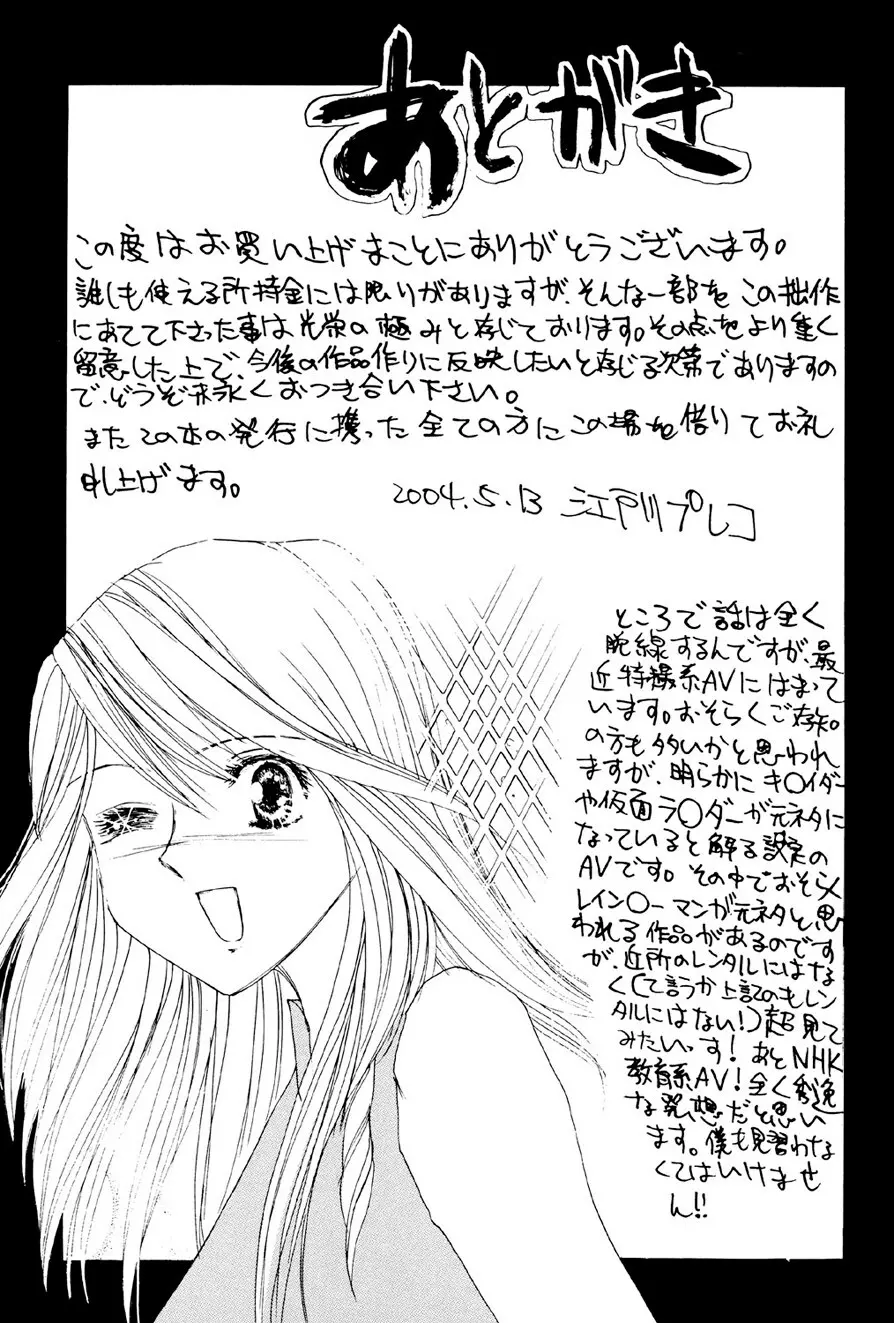 あとがき
この度はお買い上げまことにありがとうございます。
誰しも使える所持金には限りがありますが、そんな一部をこの拙作
にあてて下さった事は光栄の極みと存じております。その点をより重く
留意した上で、今後の作品作りに反映したいと存じる次第でありますの
で、どうぞ末永くおつき合い下さい。
またこの本の発行に携った全ての方にこの場を借りてお礼
申し上げます。
2004.5.13 江戸川プレコ
ところで話は全く
脱線するんですが、最
近特撮系AVにはまって
います。おそらくご存知
の方も多いかと思われ
ますが、明らかにキ〇イダー
や仮面ラ〇ダーが元ネタに
なっていると解る設定の
AVです。その中でおそらく
レイン〇ーマンが元ネタと思
われる作品があるのです
が、近所のレンタルにはな
く(て言うか上記のもレン
タルにはない!)超見て
みたいっす!あとNHK
教育系AV!全く秀逸
な発想だと思い
ます。僕も見習わな
くてはいけませ
ん!!